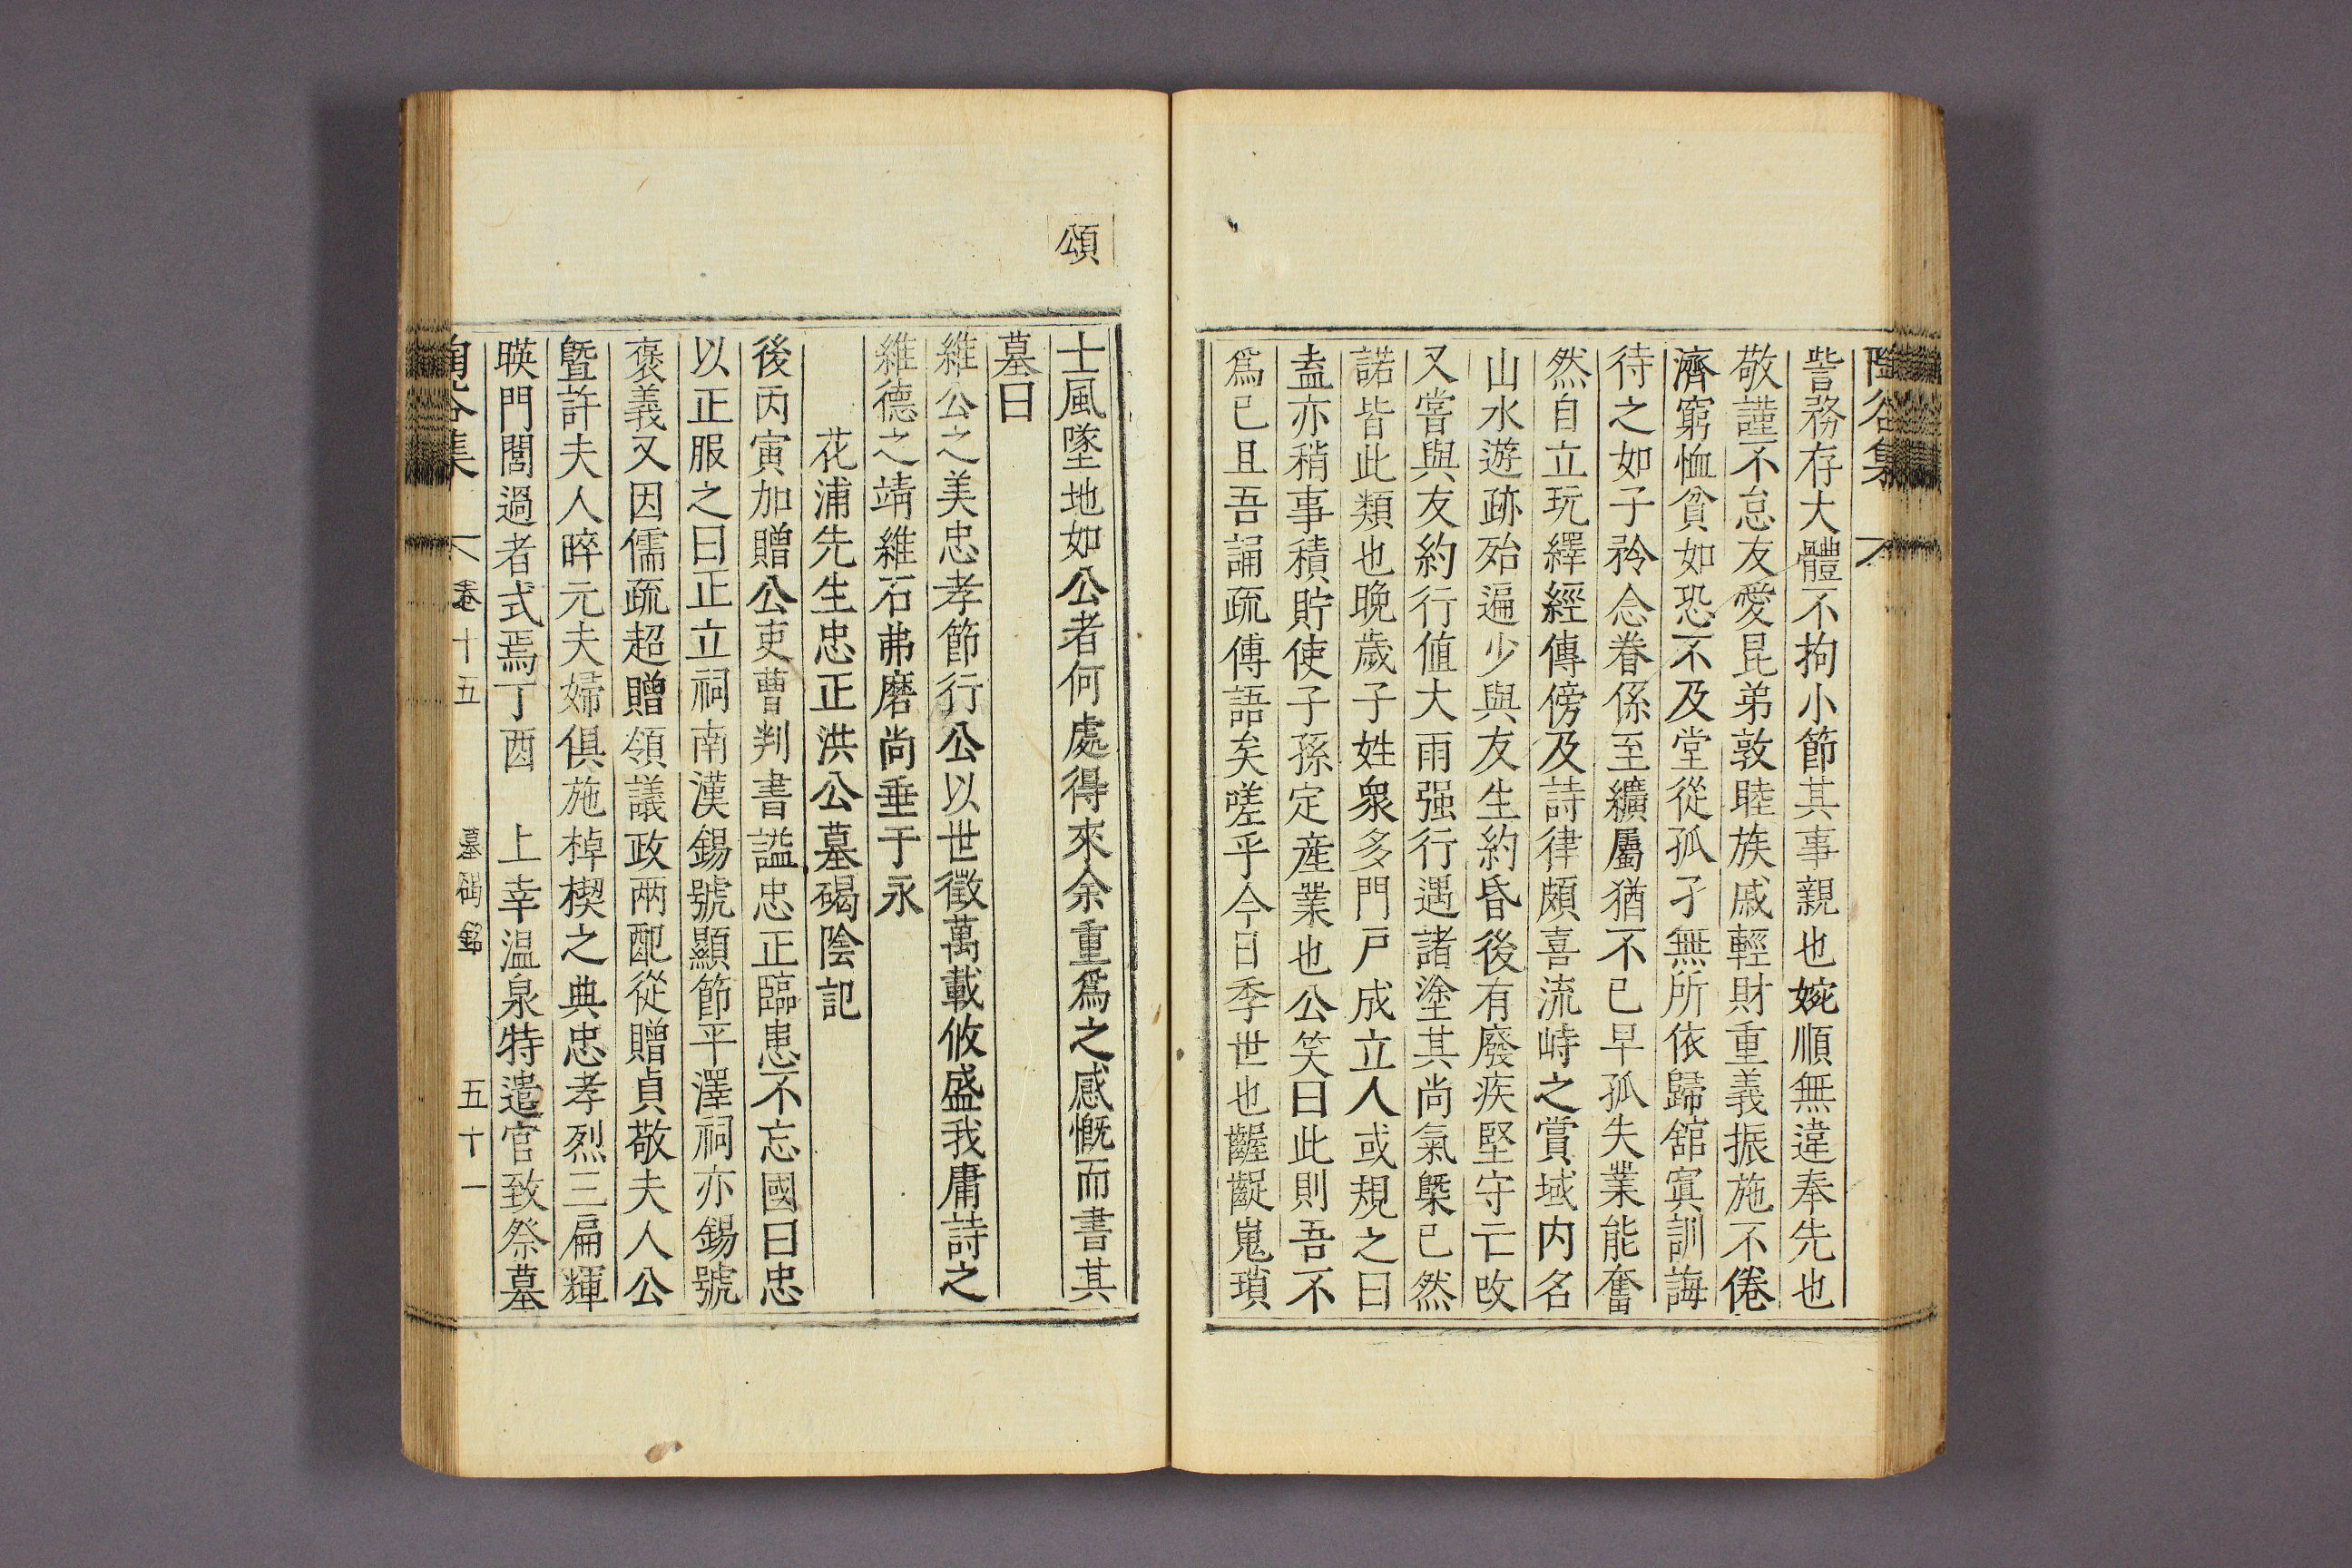 陶谷集
訾務存大體不拘小節其事親也婉順無違奉先也
敬謹不怠友愛昆弟敦睦族戚輕財重義振施不倦
濟窮恤貧如恐不及堂從孤孑無所依歸舘寘訓誨
待之如子矜念眷係至纊屬猶不已早孤失業能奮
然自立玩繹經傳傍及詩律頗喜流峙之賞域内名
山水遊跡殆遍少與友生約昏後有廢疾堅守亡改
又嘗與友約行值大雨强行遇諸塗其尚氣槩已然
諾皆此類也晚歲子姓衆多門戶成立人或規之曰
盍亦稍事積貯使子孫定産業也公笑曰此則吾不
爲已且吾誦疏傅語矣嗟乎今日季世也齷齪嵬瑣
頌
士風墜地如公者何處得來余重爲之感慨而書其
墓曰
維公之美忠孝節行公以世徵萬載攸盛我庸詩之
維德之靖維石弗磨尚垂于永
花浦先生忠正洪公墓碣陰記
後丙寅加贈公吏曹判書謚忠正臨患不忘國曰忠
以正服之曰正立祠南漢錫號顯節平澤祠亦錫號
褒義又因儒疏超贈領議政兩配從贈貞敬夫人公
曁許夫人晬元夫婦俱施棹楔之典忠孝烈三扁輝
暎門閭過者式焉丁酉 上幸温泉特遣官致祭墓
陶谷集 卷十五 墓碣銘 五十一